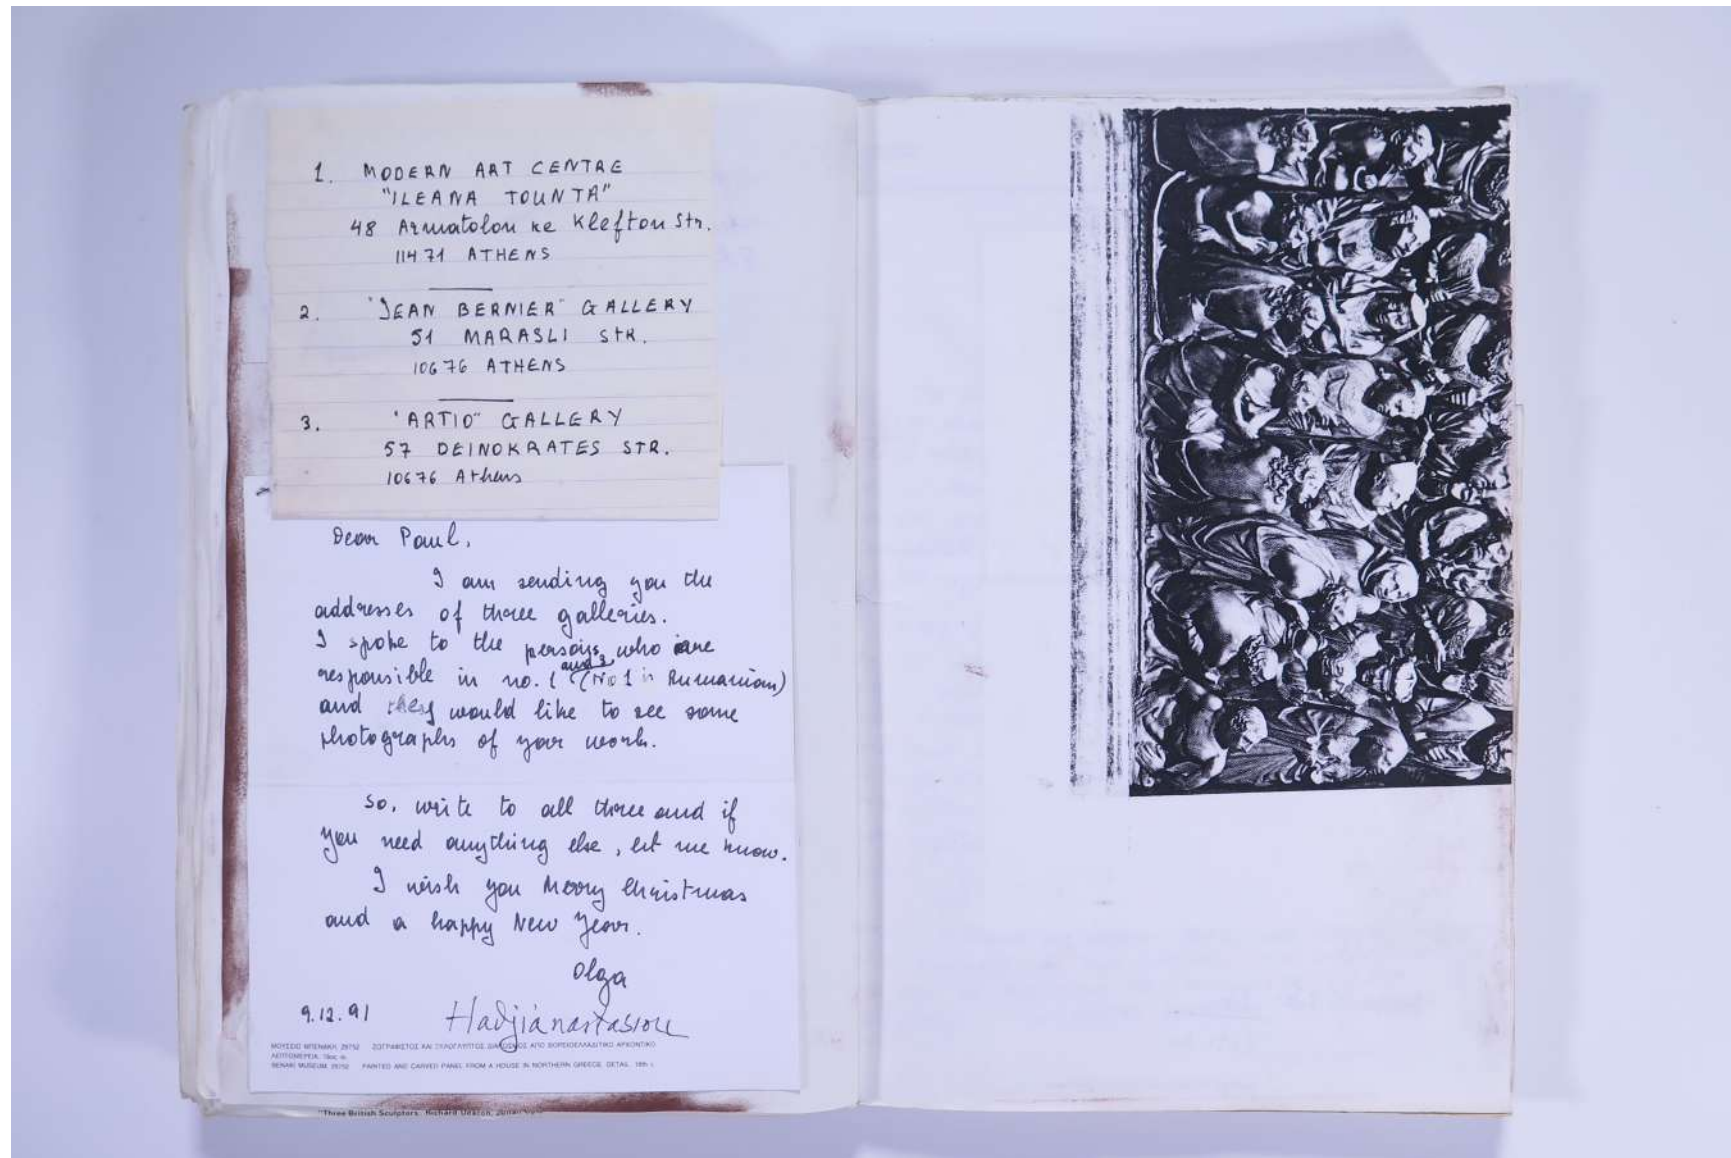 1. MODERN ART CENTRE
"ILEANA TOUNTA"
48 Armatolon ke Klefton Str.
11471 ATHENS
2. "JEAN BERNIER" GALLERY
51 MARASLI STR.
10676 ATHENS
3. "ARTIO" GALLERY
57 DEINOKRATES STR.
10676 Athens
Dear Paul,
I am sending you the
addresses of three galleries.
I spoke to the persons who are
and 3
responsible in no. 1 (No 1 is Rumanian)
and they would like to see some
photographs of your work.
So, write to all three and if
you need anything else, let me know.
I wish you Merry Christmas
and a happy New Year.
Olga
9.12.91 Hadjianastasiou
ΜΟΥΣΕΙΟ ΜΠΕΝΑΚΗ, 29752 ΖΩΓΡΑΦΙΣΤΟΣ ΚΑΙ ΞΥΛΟΓΛΥΠΤΟΣ ΔΙΑΚΟΣΜΟΣ ΑΠΟ ΒΟΡΕΙΟΕΛΛΑΔΙΤΙΚΟ ΑΡΧΟΝΤΙΚΟ
ΛΕΠΤΟΜΕΡΕΙΑ. 18ος αι.
BENAKI MUSEUM, 29752 PAINTED AND CARVED PANEL FROM A HOUSE IN NORTHERN GREECE. DETAIL. 18th c.
"Three British Sculptors: Richard Deacon,